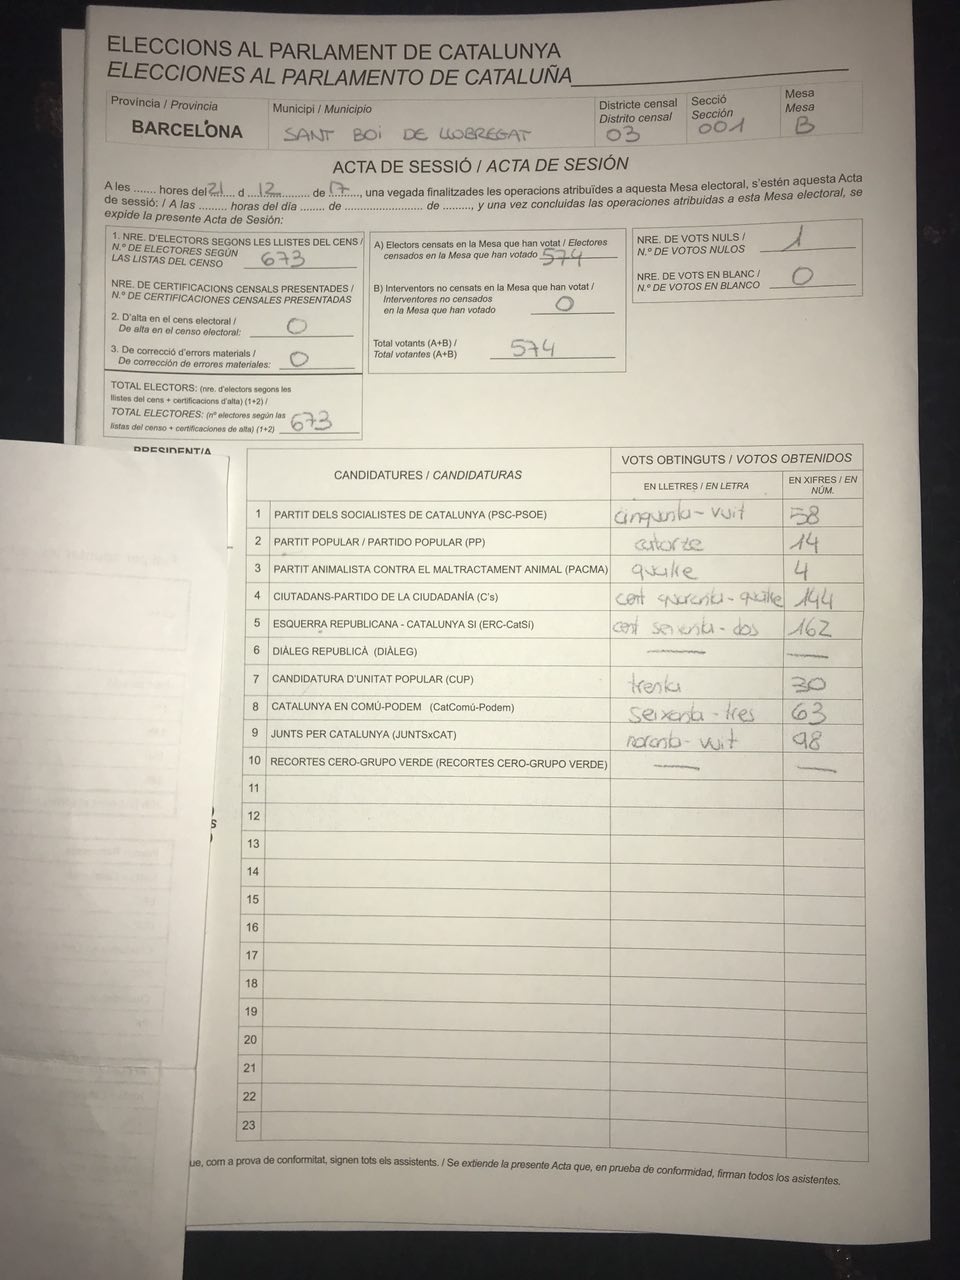 ELECCIONS AL PARLAMENT DE CATALUNYA
ELECCIONES AL PARLAMENTO DE CATALUÑA
Província / Provincia
BARCELONA
Municipi / Municipio
SANT BOI DE LLOBREGAT
Districte censal
Distrito censal
03
Secció
Sección
001
Mesa
Mesa
B
ACTA DE SESSIÓ / ACTA DE SESIÓN
A les ....... hores del 21 d 12 de 17, una vegada finalitzades les operacions atribuïdes a aquesta Mesa electoral, s'estén aquesta Acta
de sessió: / A las ......... horas del día ........ de ..................... de ........., y una vez concluidas las operaciones atribuidas a esta Mesa electoral, se
expide la presente Acta de Sesión:
1. NRE. D'ELECTORS SEGONS LES LLISTES DEL CENS /
N.º DE ELECTORES SEGÚN
LAS LISTAS DEL CENSO 673
NRE. DE CERTIFICACIONS CENSALS PRESENTADES /
N.º DE CERTIFICACIONES CENSALES PRESENTADAS
2. D'alta en el cens electoral /
De alta en el censo electoral: 0
3. De correcció d'errors materials /
De corrección de errores materiales: 0
TOTAL ELECTORS: (nre. d'electors segons les
llistes del cens + certificacions d'alta) (1+2) /
TOTAL ELECTORES: (nº electores según las
listas del censo + certificaciones de alta) (1+2) 673
A) Electors censats en la Mesa que han votat / Electores
censados en la Mesa que han votado 574
B) Interventors no censats en la Mesa que han votat /
Interventores no censados
en la Mesa que han votado 0
Total votants (A+B) /
Total votantes (A+B) 574
NRE. DE VOTS NULS /
N.º DE VOTOS NULOS 1
NRE. DE VOTS EN BLANC /
N.º DE VOTOS EN BLANCO 0
PRESIDENT/A
CANDIDATURES / CANDIDATURAS
VOTS OBTINGUTS / VOTOS OBTENIDOS
EN LLETRES / EN LETRA
EN XIFRES / EN
NÚM.
1 PARTIT DELS SOCIALISTES DE CATALUNYA (PSC-PSOE) cinquanta-vuit 58
2 PARTIT POPULAR / PARTIDO POPULAR (PP) catorze 14
3 PARTIT ANIMALISTA CONTRA EL MALTRACTAMENT ANIMAL (PACMA) quatre 4
4 CIUTADANS-PARTIDO DE LA CIUDADANÍA (C's) cent quaranta-quatre 144
5 ESQUERRA REPUBLICANA - CATALUNYA SÍ (ERC-CatSí) cent seixanta-dos 162
6 DIÀLEG REPUBLICÀ (DIÀLEG) — —
7 CANDIDATURA D'UNITAT POPULAR (CUP) trenta 30
8 CATALUNYA EN COMÚ-PODEM (CatComú-Podem) seixanta-tres 63
9 JUNTS PER CATALUNYA (JUNTSxCAT) noranta-vuit 98
10 RECORTES CERO-GRUPO VERDE (RECORTES CERO-GRUPO VERDE) — —
11
12
13
14
15
16
17
18
19
20
21
22
23
ue, com a prova de conformitat, signen tots els assistents. / Se extiende la presente Acta que, en prueba de conformidad, firman todos los asistentes.